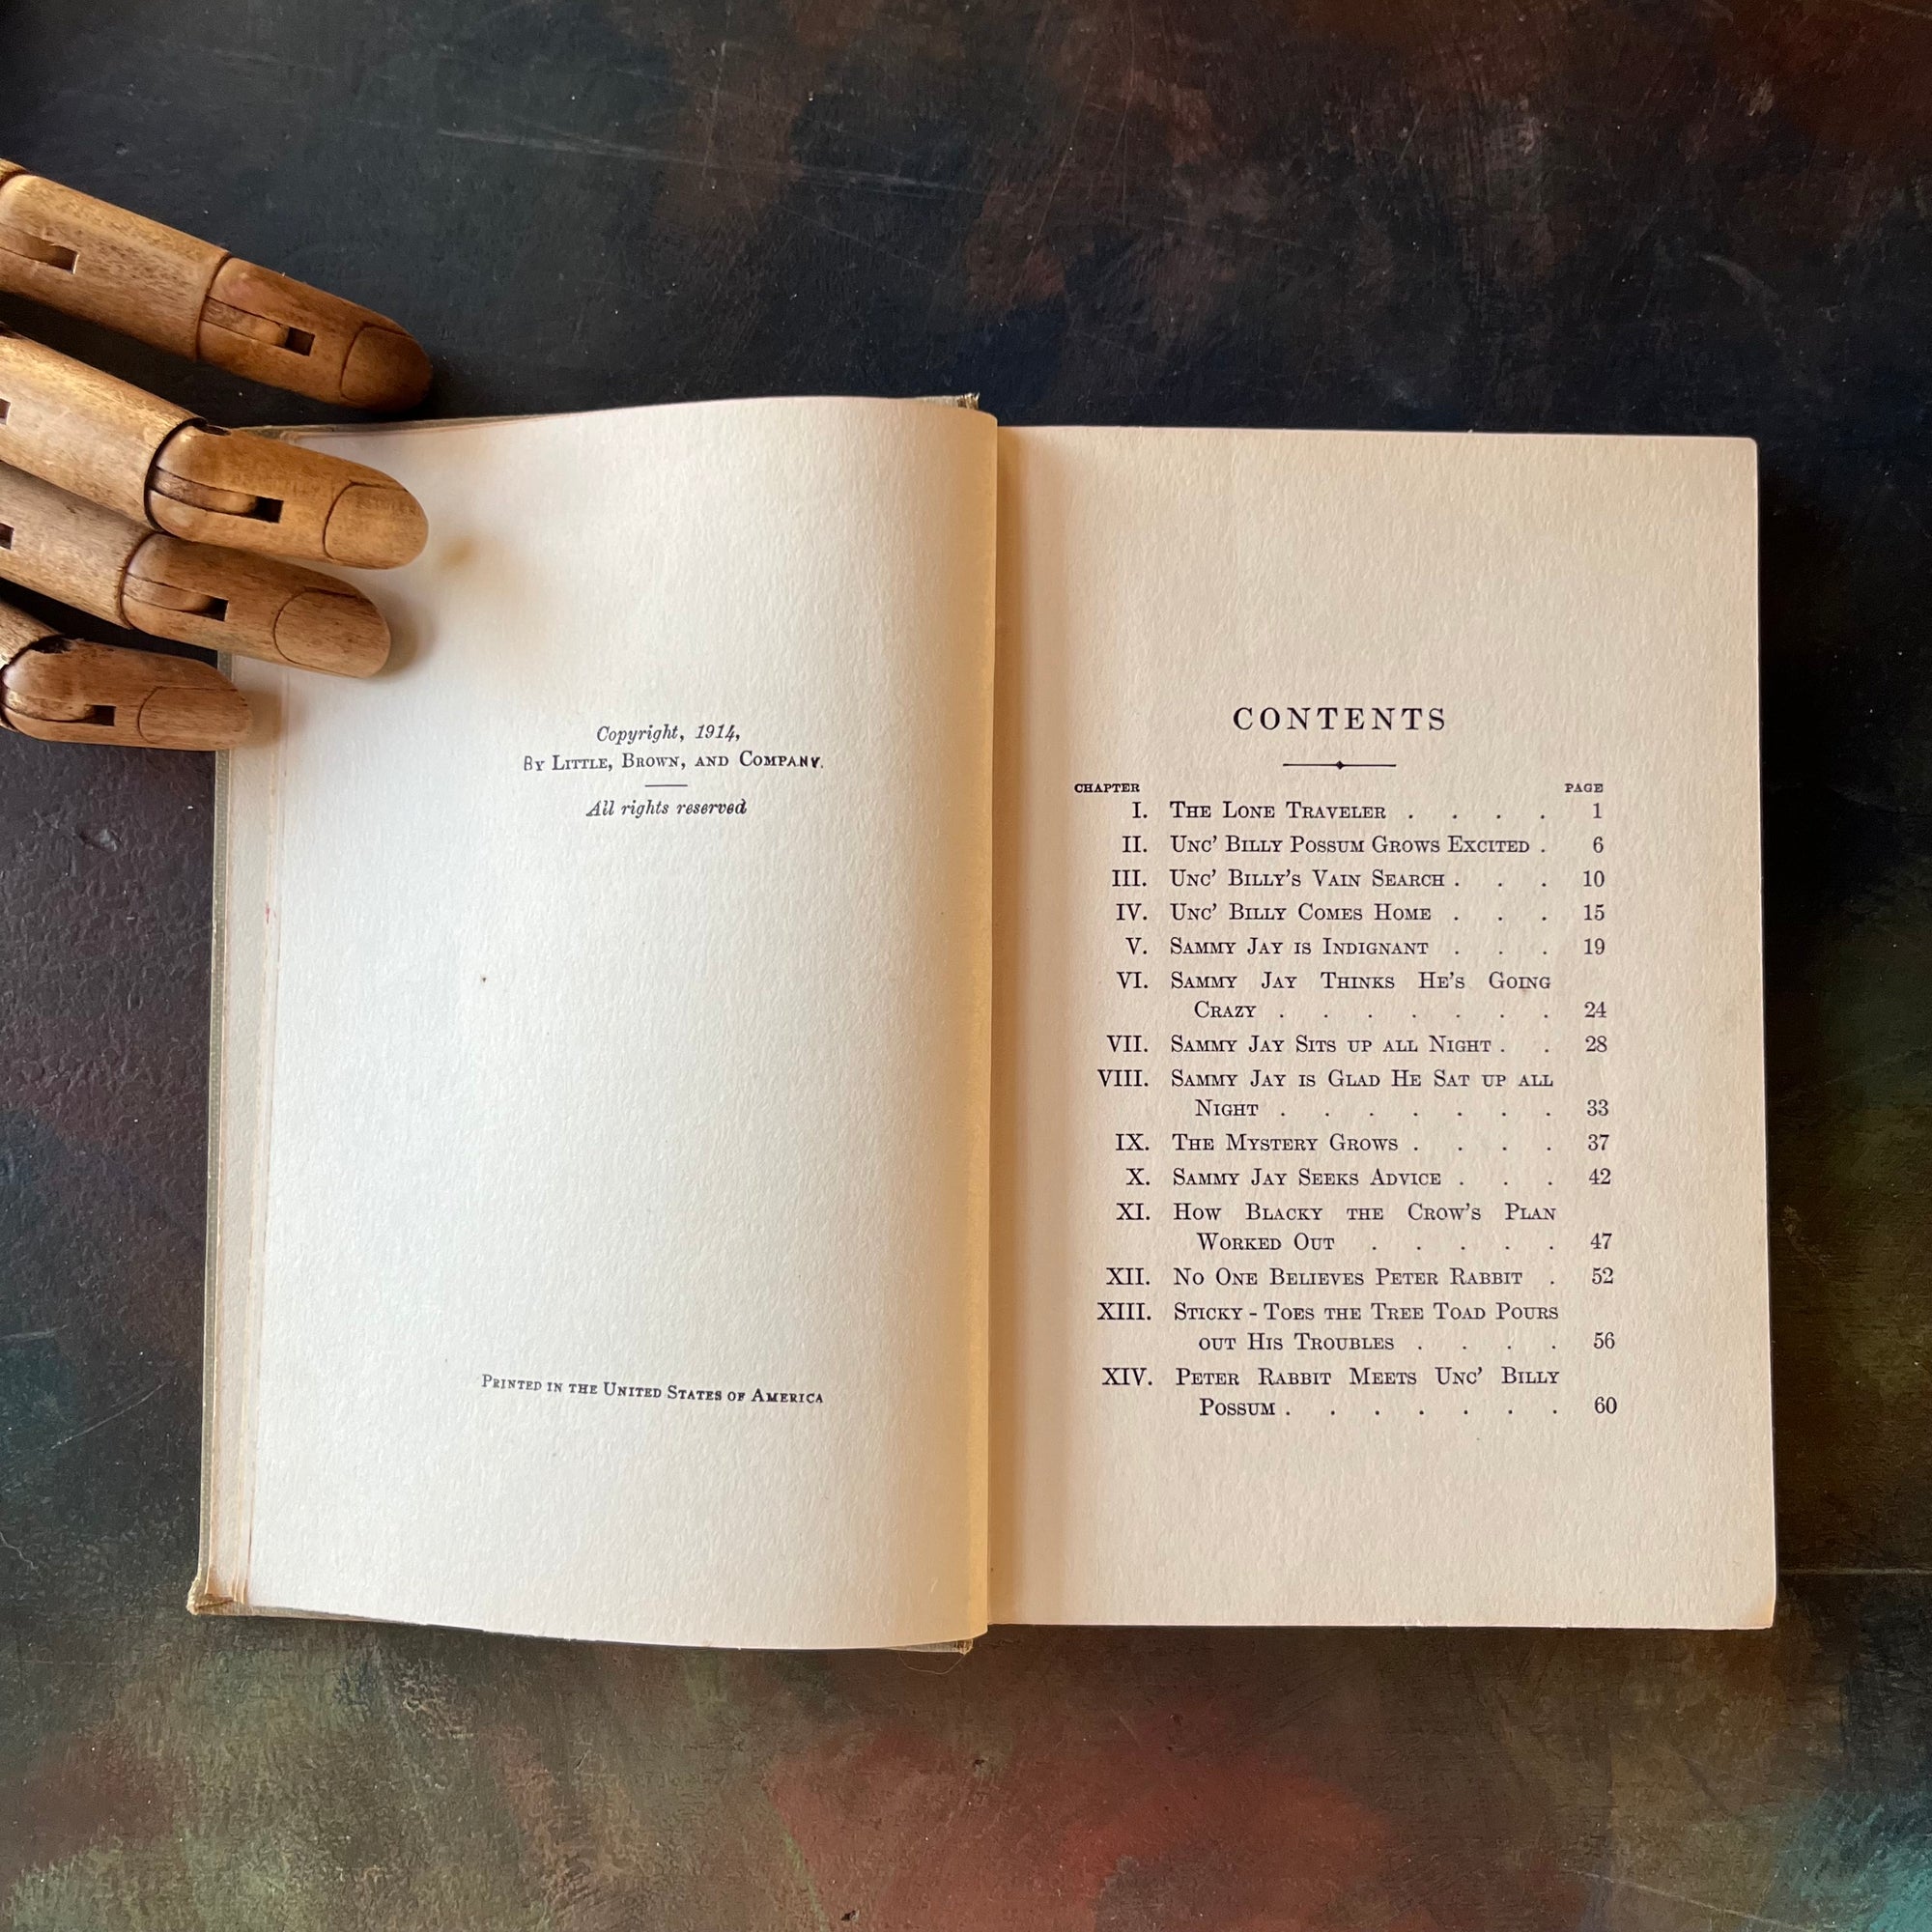 Copyright, 1914,
By Little, Brown, and Company.
All rights reserved
Printed in the United States of America
CONTENTS
CHAPTER PAGE
I. The Lone Traveler . . . . 1
II. Unc' Billy Possum Grows Excited . 6
III. Unc' Billy's Vain Search . . . 10
IV. Unc' Billy Comes Home . . . 15
V. Sammy Jay is Indignant . . . 19
VI. Sammy Jay Thinks He's Going
Crazy . . . . . . . 24
VII. Sammy Jay Sits up all Night . . 28
VIII. Sammy Jay is Glad He Sat up all
Night . . . . . . . 33
IX. The Mystery Grows . . . . 37
X. Sammy Jay Seeks Advice . . . 42
XI. How Blacky the Crow's Plan
Worked Out . . . . . 47
XII. No One Believes Peter Rabbit . 52
XIII. Sticky-Toes the Tree Toad Pours
out His Troubles . . . . 56
XIV. Peter Rabbit Meets Unc' Billy
Possum . . . . . . . 60